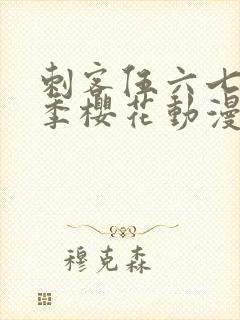 刺客伍六七
季櫻花動漫
穆克森